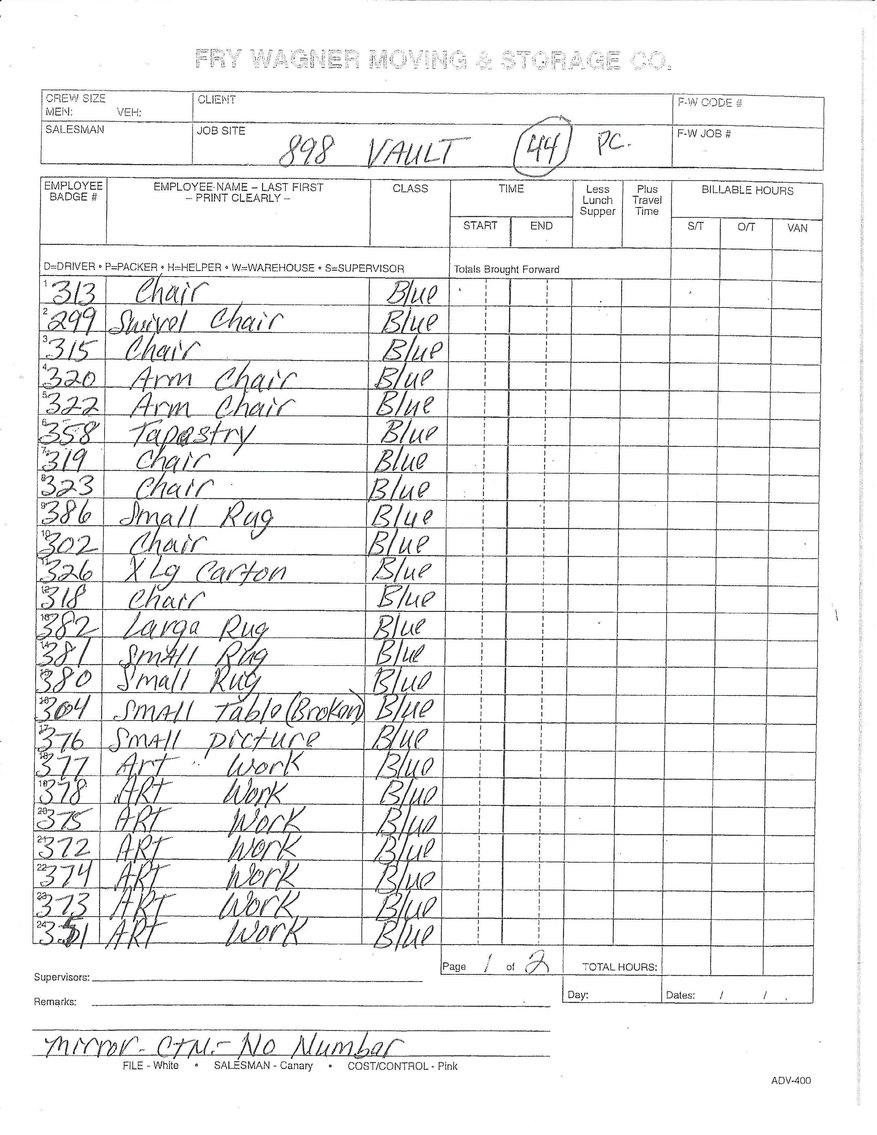 FRY WAGNER MOVING & STORAGE CO.
CREW SIZE
MEN: VEH:
CLIENT
F-W CODE #
SALESMAN
JOB SITE
898 VAULT 44 PC.
F-W JOB #
EMPLOYEE BADGE #
EMPLOYEE NAME – LAST FIRST
– PRINT CLEARLY –
CLASS
TIME
START END
Less Lunch Supper
Plus Travel Time
BILLABLE HOURS
S/T O/T VAN
D=DRIVER • P=PACKER • H=HELPER • W=WAREHOUSE • S=SUPERVISOR
Totals Brought Forward
1 313 Chair Blue
2 299 Swivel Chair Blue
3 315 Chair Blue
4 320 Arm Chair Blue
5 322 Arm Chair Blue
6 358 Tapestry Blue
7 319 Chair Blue
8 323 Chair Blue
9 386 Small Rug Blue
10 302 Chair Blue
11 326 X Lg Carton Blue
12 318 Chair Blue
13 382 Large Rug Blue
14 381 Small Rug Blue
15 380 Small Rug Blue
16 304 Small Table (Broken) Blue
17 376 Small picture Blue
18 377 Art Work Blue
19 378 ART Work Blue
20 375 ART Work Blue
21 372 ART Work Blue
22 374 ART Work Blue
23 373 ART Work Blue
24 351 ART Work Blue
Page 1 of 2 TOTAL HOURS:
Supervisors:
Remarks:
Day: Dates: / / .
Mirror - CTN. - No Number
FILE - White • SALESMAN - Canary • COST/CONTROL - Pink
ADV-400